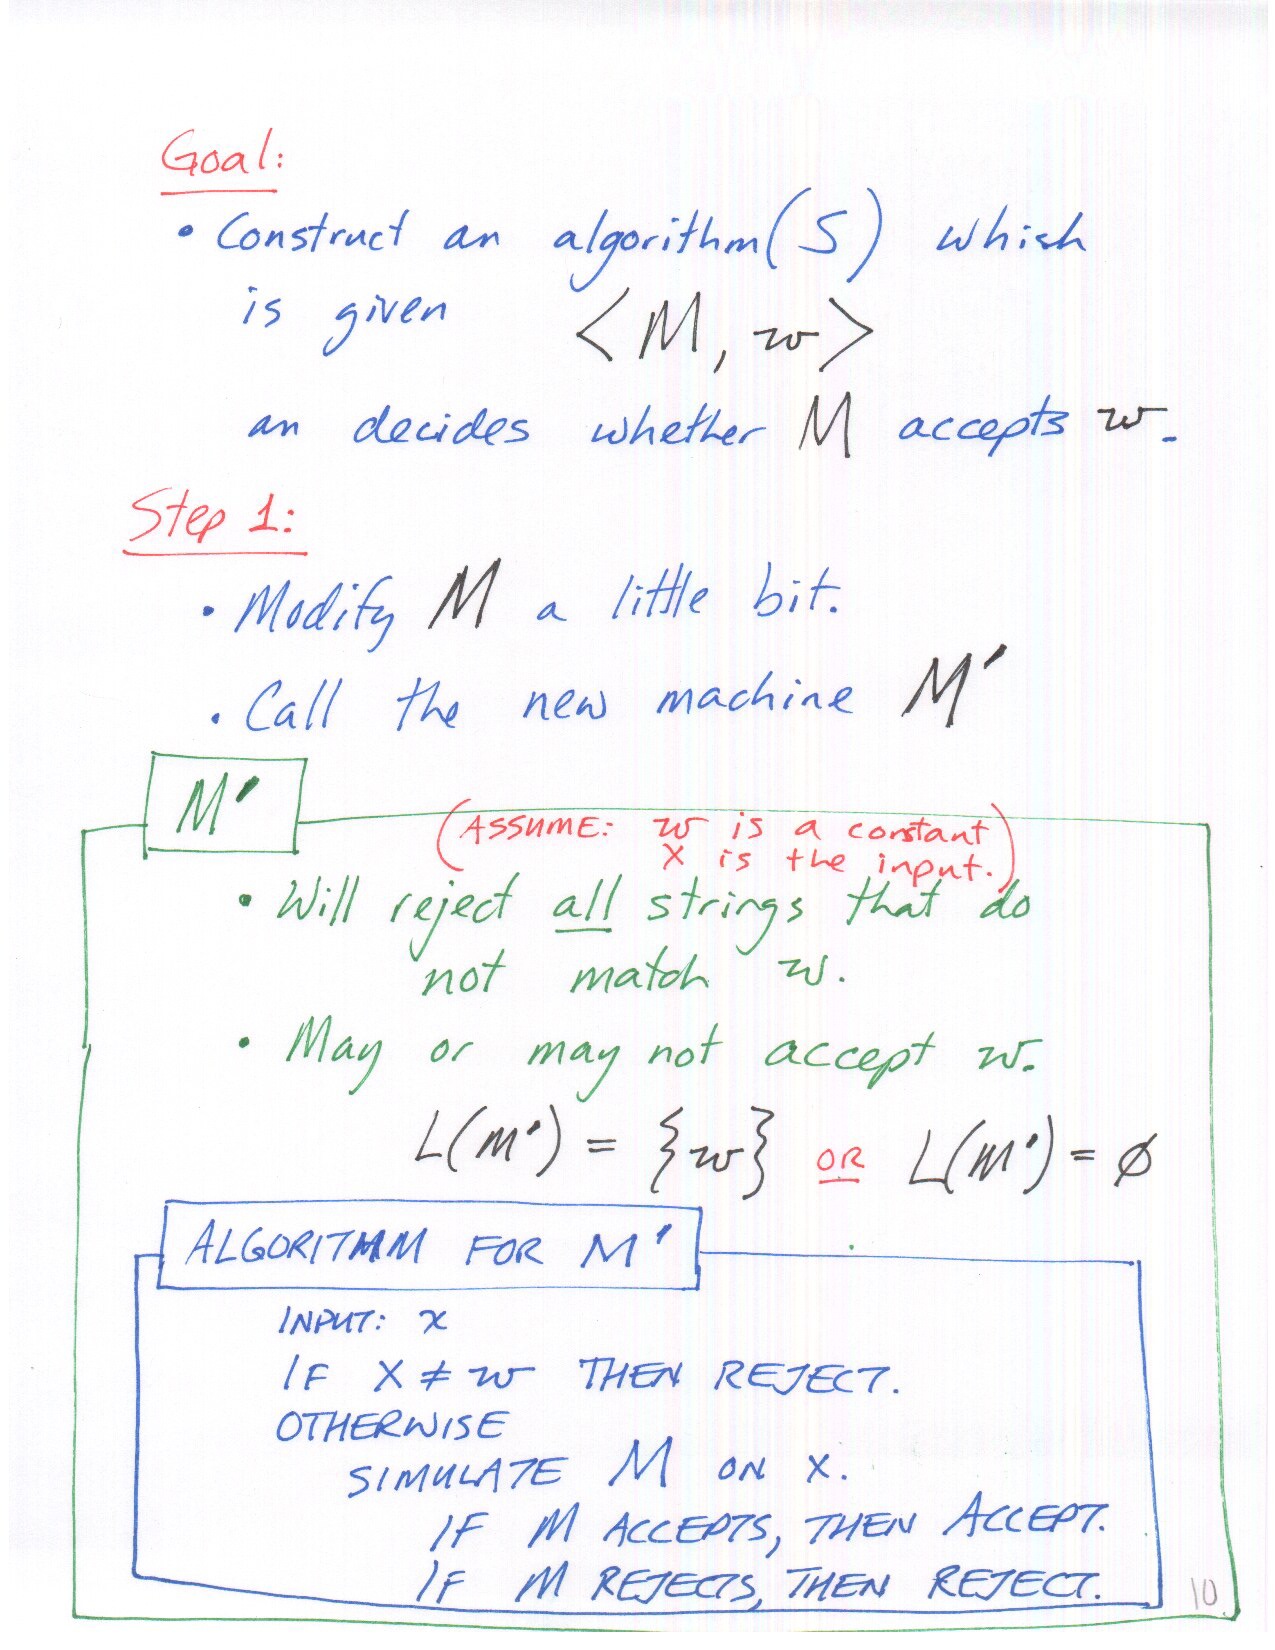 Goal:
• Construct an algorithm (S) which
is given <M, w>
an decides whether M accepts w.
Step 1:
• Modify M a little bit.
• Call the new machine M'
M'
(ASSUME: w is a constant
x is the input.)
• Will reject all strings that do
not match w.
• May or may not accept w.
L(M') = {w} OR L(M') = ∅
ALGORITHM FOR M'
INPUT: x
IF x ≠ w THEN REJECT.
OTHERWISE
SIMULATE M ON x.
IF M ACCEPTS, THEN ACCEPT.
IF M REJECTS, THEN REJECT.
10